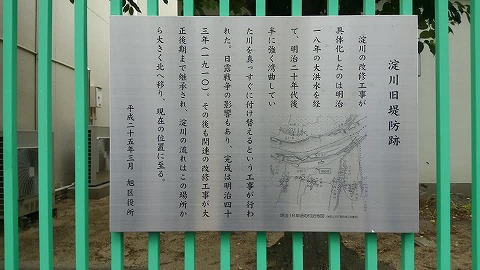 淀川旧堤防跡
淀川の改修工事が
具体化したのは明治
一八年の大洪水を経
て、明治二十年代後
半に強く湾曲してい
た川を真っすぐに付け替えるという工事が行わ
れた。日露戦争の影響もあり、完成は明治四十
三年（一九一〇）。その後も関連の改修工事が大
正後期まで継承され、淀川の流れはこの場所か
ら大きく北へ移り、現在の位置に至る。
平成二十五年三月　旭区役所